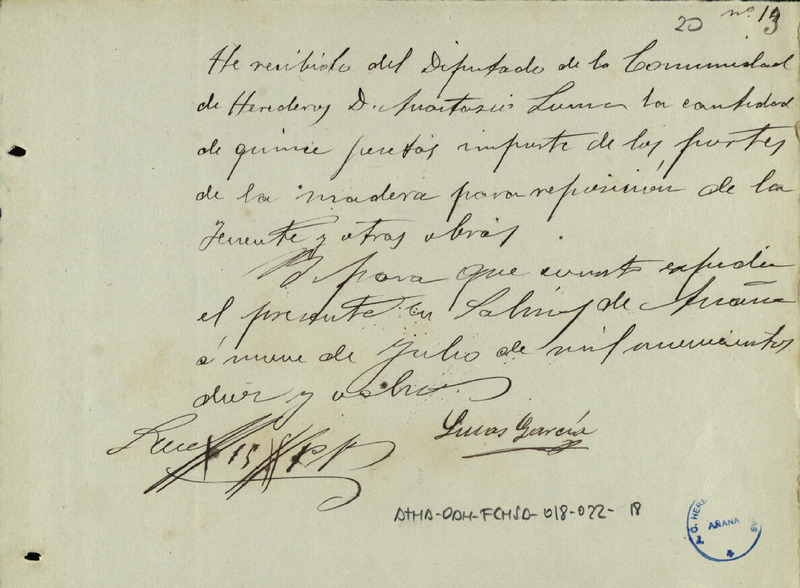 20 nº 13
He recibido del Diputado de la Comunidad
de Herederos D. Anastasio Luna la cantidad
de quince pesetas importe de los portes
de la madera para reposición de la
fuente y otras obras
Y para que conste expedir
el presente en Salinas de Añana
á nueve de Julio de mil novecientos
diez y ocho
Son # 15 # pts
Lucas García
ATHA-DAH-FCHSA-018-022-18
ARANA
4